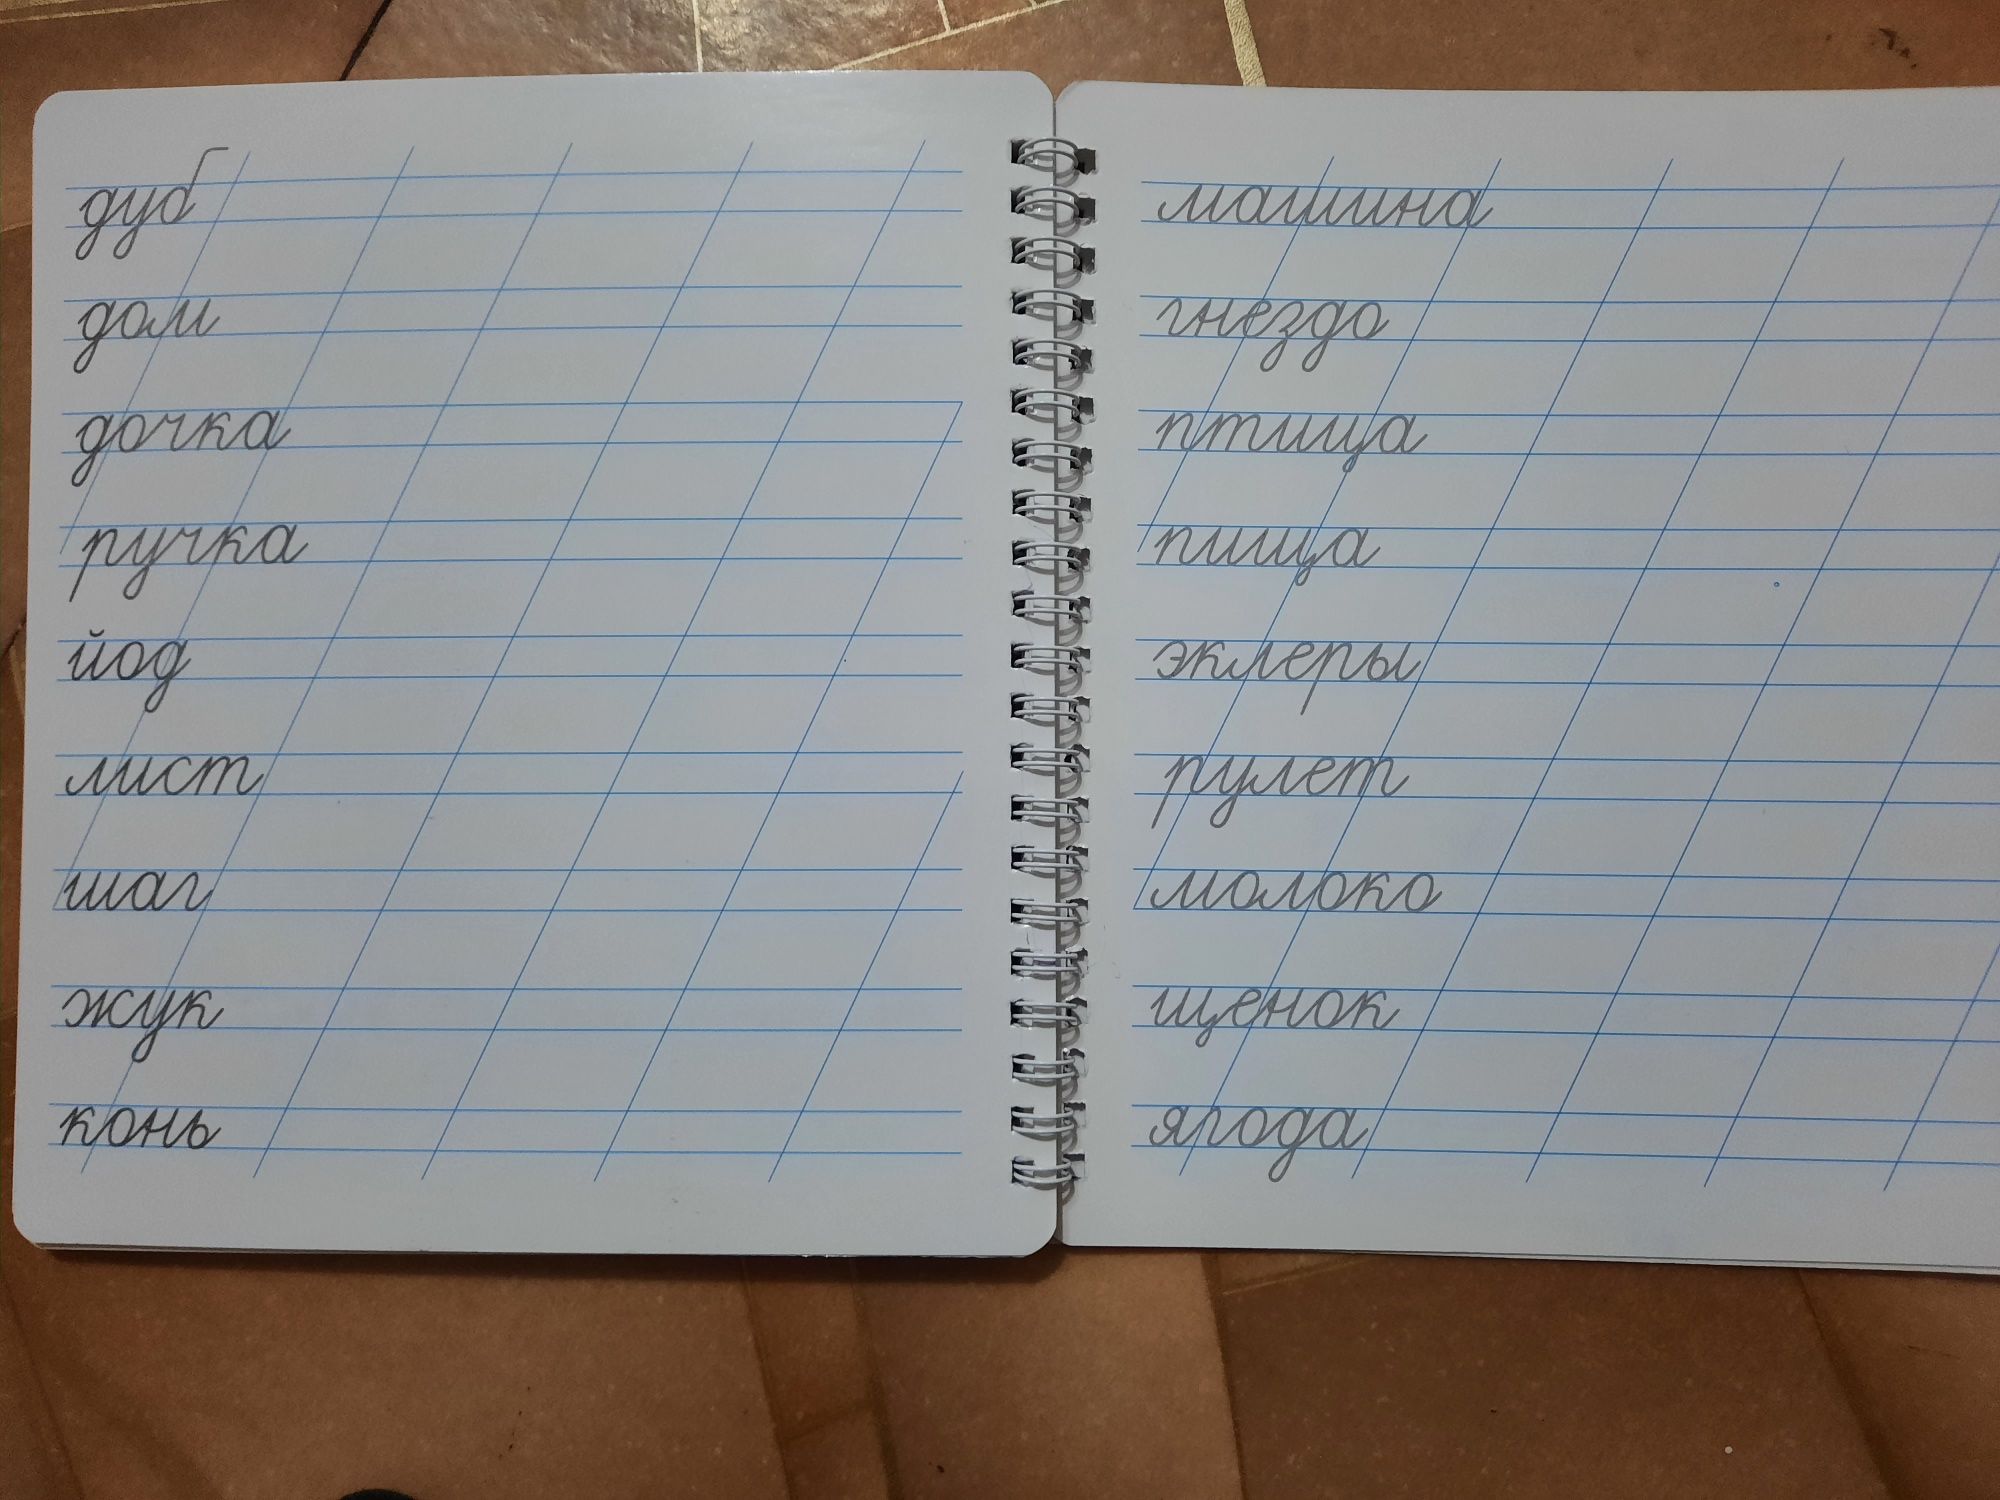 дуб
дом
дочка
ручка
йод
лист
шаг
жук
конь
машина
гнездо
птица
пища
эклеры
рулет
молоко
щенок
ягода